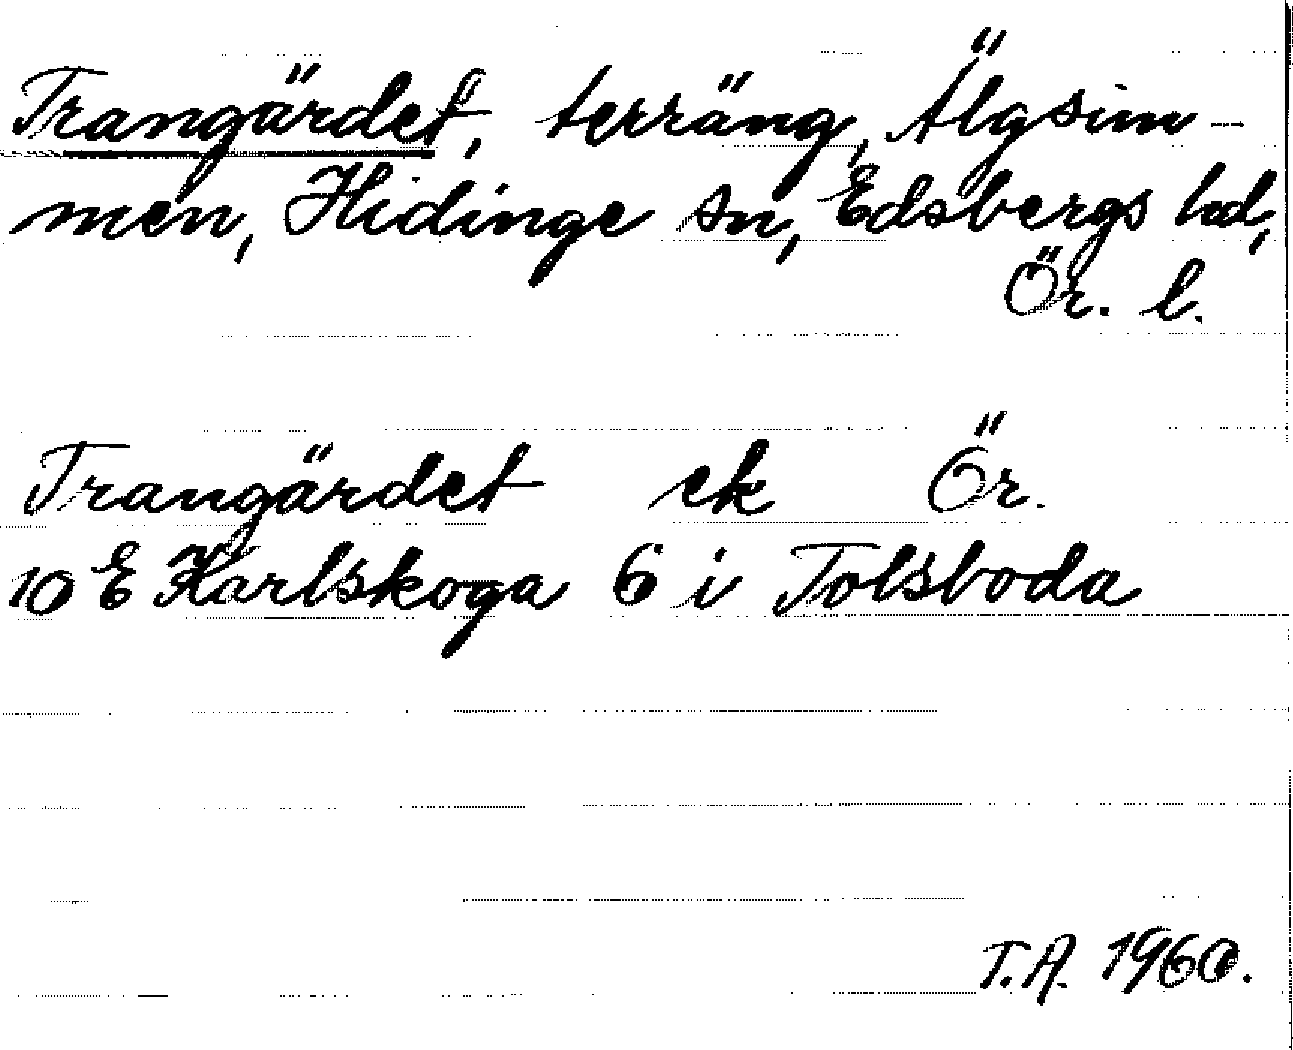 Trangärdet, terräng, Älgsim-
men, Hidinge sn, Edsbergs hd,
Ör. l.
Trangärdet ek Ör.
10 E Karlskoga 6 i Tolsboda
T.A. 1960.